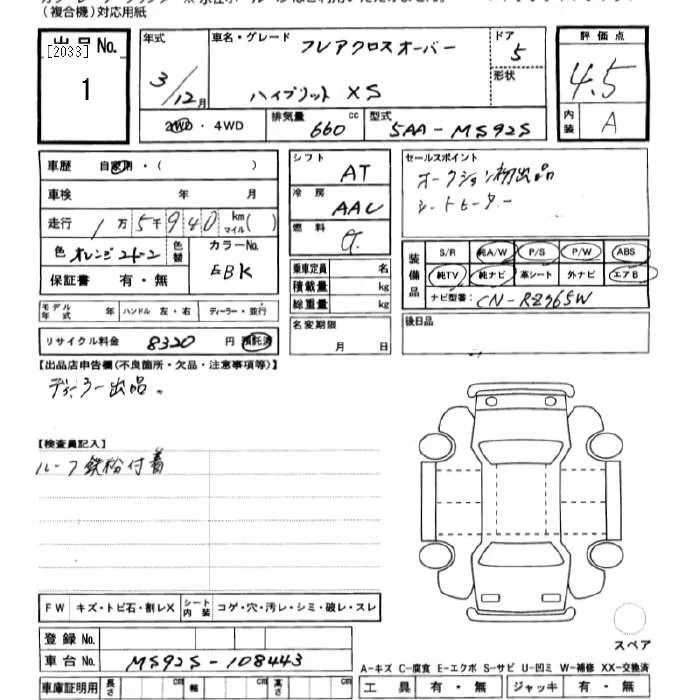 (複合機)対応用紙
出品No. [2033]
1
年式 3/12月
車名・グレード フレアクロスオーバー
ハイブリット XS
ドア 5
形状
評価点 4.5
内装 A
2WD・4WD
排気量 660 cc
型式 5AA-MS92S
車歴 自家用・( )
車検 年 月
走行 1万5千940 km マイル( )
色 オレンジ2トーン 色替
カラーNo. EBK
保証書 有・無
シフト AT
冷房 AAC
燃料 G
乗車定員 名
積載量 kg
総重量 kg
名変期限 月 日
セールスポイント
オークション初出品
シートヒーター
装備品
S/R 純A/W P/S P/W ABS
純TV 純ナビ 革シート 外ナビ エアB
ナビ型番: CN-RZ765W
後日品
モデル年式 年 ハンドル 左・右 ディーラー・並行
リサイクル料金 8320 円 預託済
【出品店申告欄(不良箇所・欠品・注意事項等)】
ディーラー出品。
【検査員記入】
ルーフ鉄粉付着
FW キズ・トビ石・割レX シート内装 コゲ・穴・汚レ・シミ・破レ・スレ
登録No.
車台No. MS92S-108443
車庫証明用 長さ cm 幅 cm 高さ cm
スペア
A-キズ C-腐食 E-エクボ S-サビ U-凹ミ W-補修 XX-交換済
工具 有・無 ジャッキ 有・無